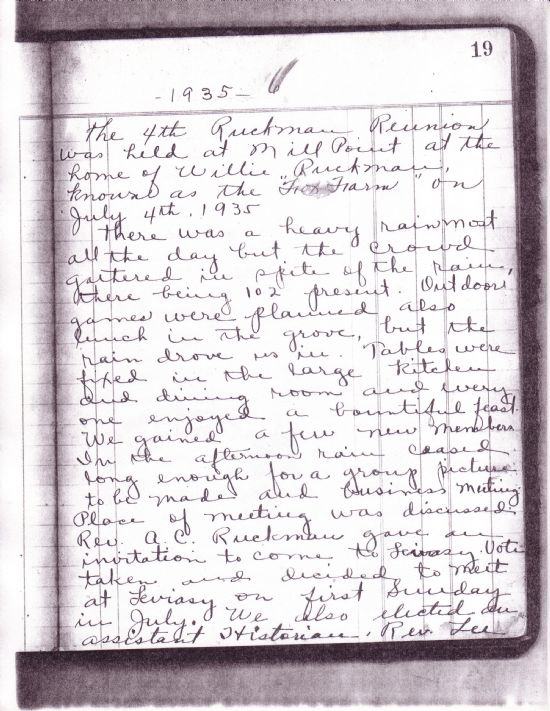 19
- 1935 -
The 4th Ruckman Reunion
was held at Mill Point at the
home of Willie Ruckman,
known as the "Fox Farm" on
July 4th, 1935
There was a heavy rain most
all the day but the crowd
gathered in spite of the rain,
there being 102 present. Outdoor
games were planned also
lunch in the grove, but the
rain drove us in. Tables were
fixed in the large kitchen
and dining room and every
one enjoyed a bountiful feast.
We gained a few new members
In the afternoon rain ceased
long enough for a group picture
to be made and business meeting.
Place of meeting was discussed
Rev. A.C. Ruckman gave an
invitation to come to Leivasy. Vote
taken and decided to meet
at Leviasy on first Sunday
in July. We also elected an
assistant Historian, Rev. Lee